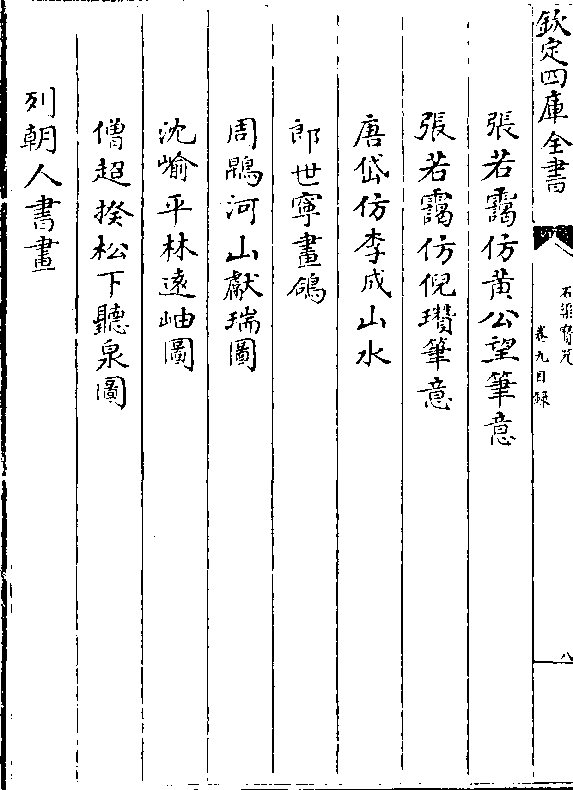 欽定四庫全書
石渠寶笈
卷九目録
八
張若靄仿黄公望筆意
張若靄仿倪瓚筆意
唐岱仿李成山水
郎世寧畫鴿
周鵾河山獻瑞圖
沈崳平林遠岫圖
僧超揆松下聽泉圖
列朝人書畫